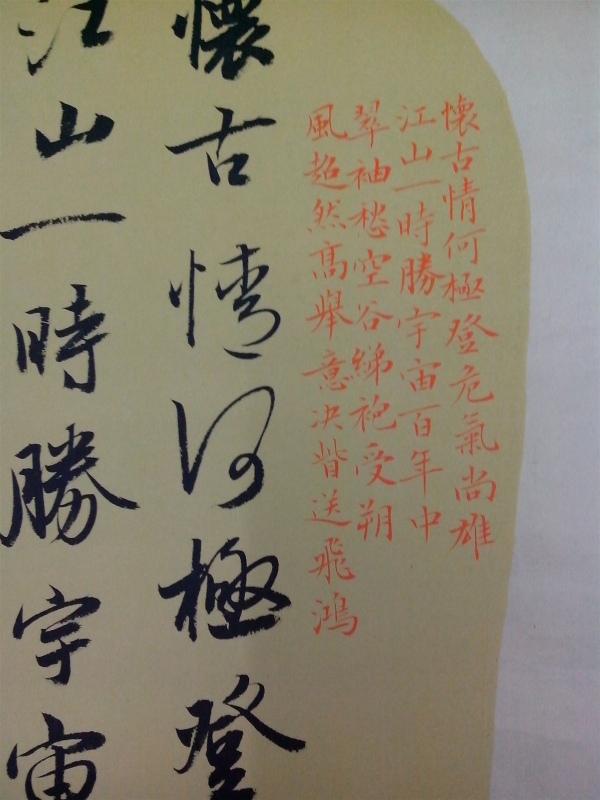 懷古情何極登危氣尚雄
江山一時勝宇宙百年中
翠袖愁空谷綈袍受朔
風超然髙舉意决眥送飛鴻
懷古情何極登
江山一時勝宇宙